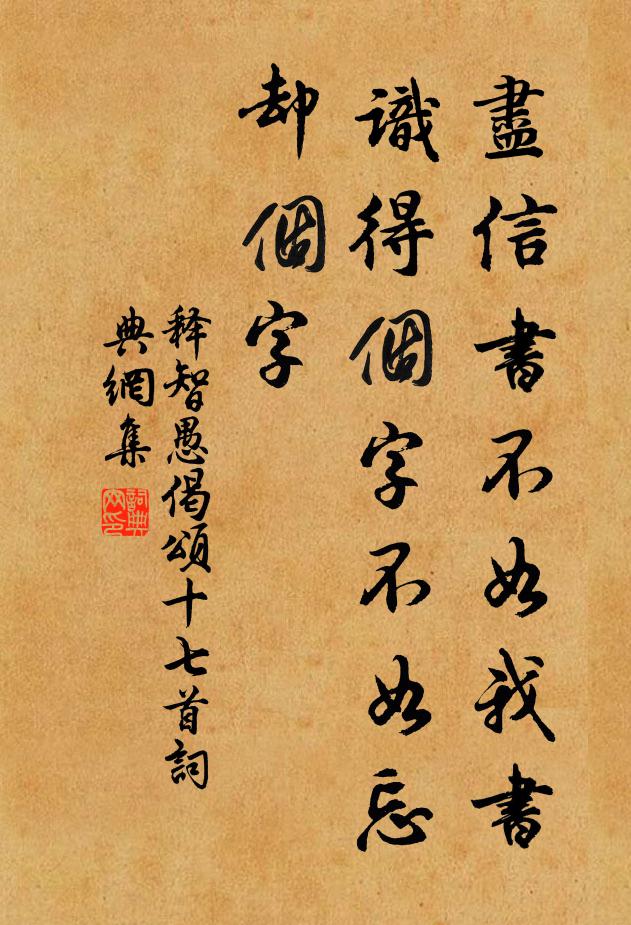 盡信書不如我書
識得個字不如忘
却個字
释智愚偈頌十七首詞
典網集
詞典
网印